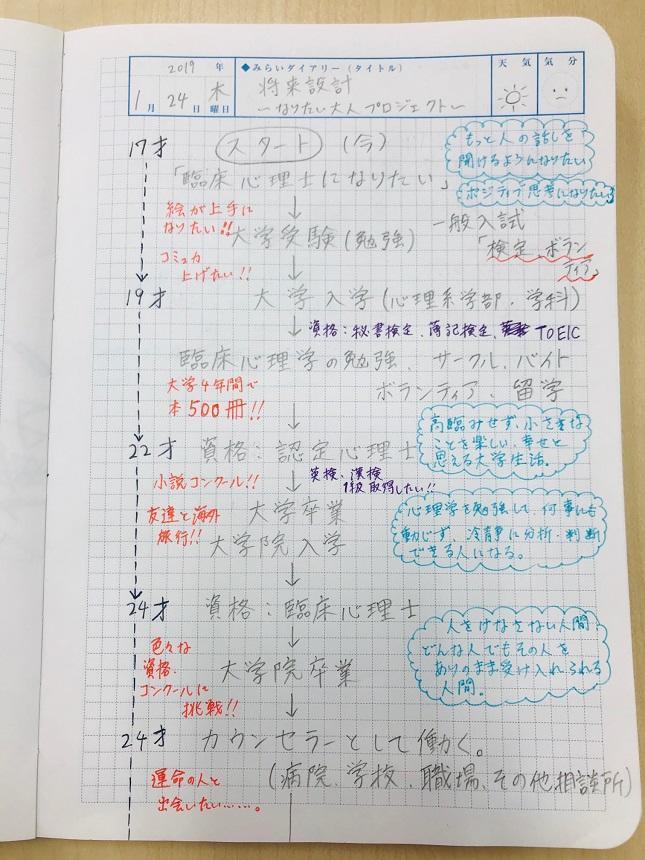 2019 年
◆みらいダイアリー(タイトル)
天気
気分
1月 24日 木曜日
将来設計
〜なりたい大人プロジェクト〜
17才 スタート (今)
もっと人の話しを
聞けるようになりたい
「臨床心理士になりたい」
ポジティブ思考になりたい
絵が上手に
なりたい!!
大学受験(勉強)
一般入試
「検定、ボラン
ティア」
コミュ力
上げたい!!
19才 大学入学(心理系学部・学科)
資格:秘書検定、簿記検定、TOEIC
臨床心理学の勉強、サークル、バイト
ボランティア、留学
大学4年間で
本500冊!!
高望みせず、小さな
ことを楽しい、幸せと
思える大学生活。
22才 資格:認定心理士
小説コンクール!!
英検、漢検
1級取得したい!!
友達と海外
旅行!!
大学卒業
大学院入学
心理学を勉強して、何事にも
動じず、冷静に分析・判断
できる人になる。
24才 資格:臨床心理士
人をけなさない人間
どんな人でもその人を
ありのまま受け入れられる
人間。
色々な
資格、
コンクールに
挑戦!!
大学院卒業
24才 カウンセラーとして働く。
(病院、学校、職場、その他相談所)
運命の人と
出会いたい……。